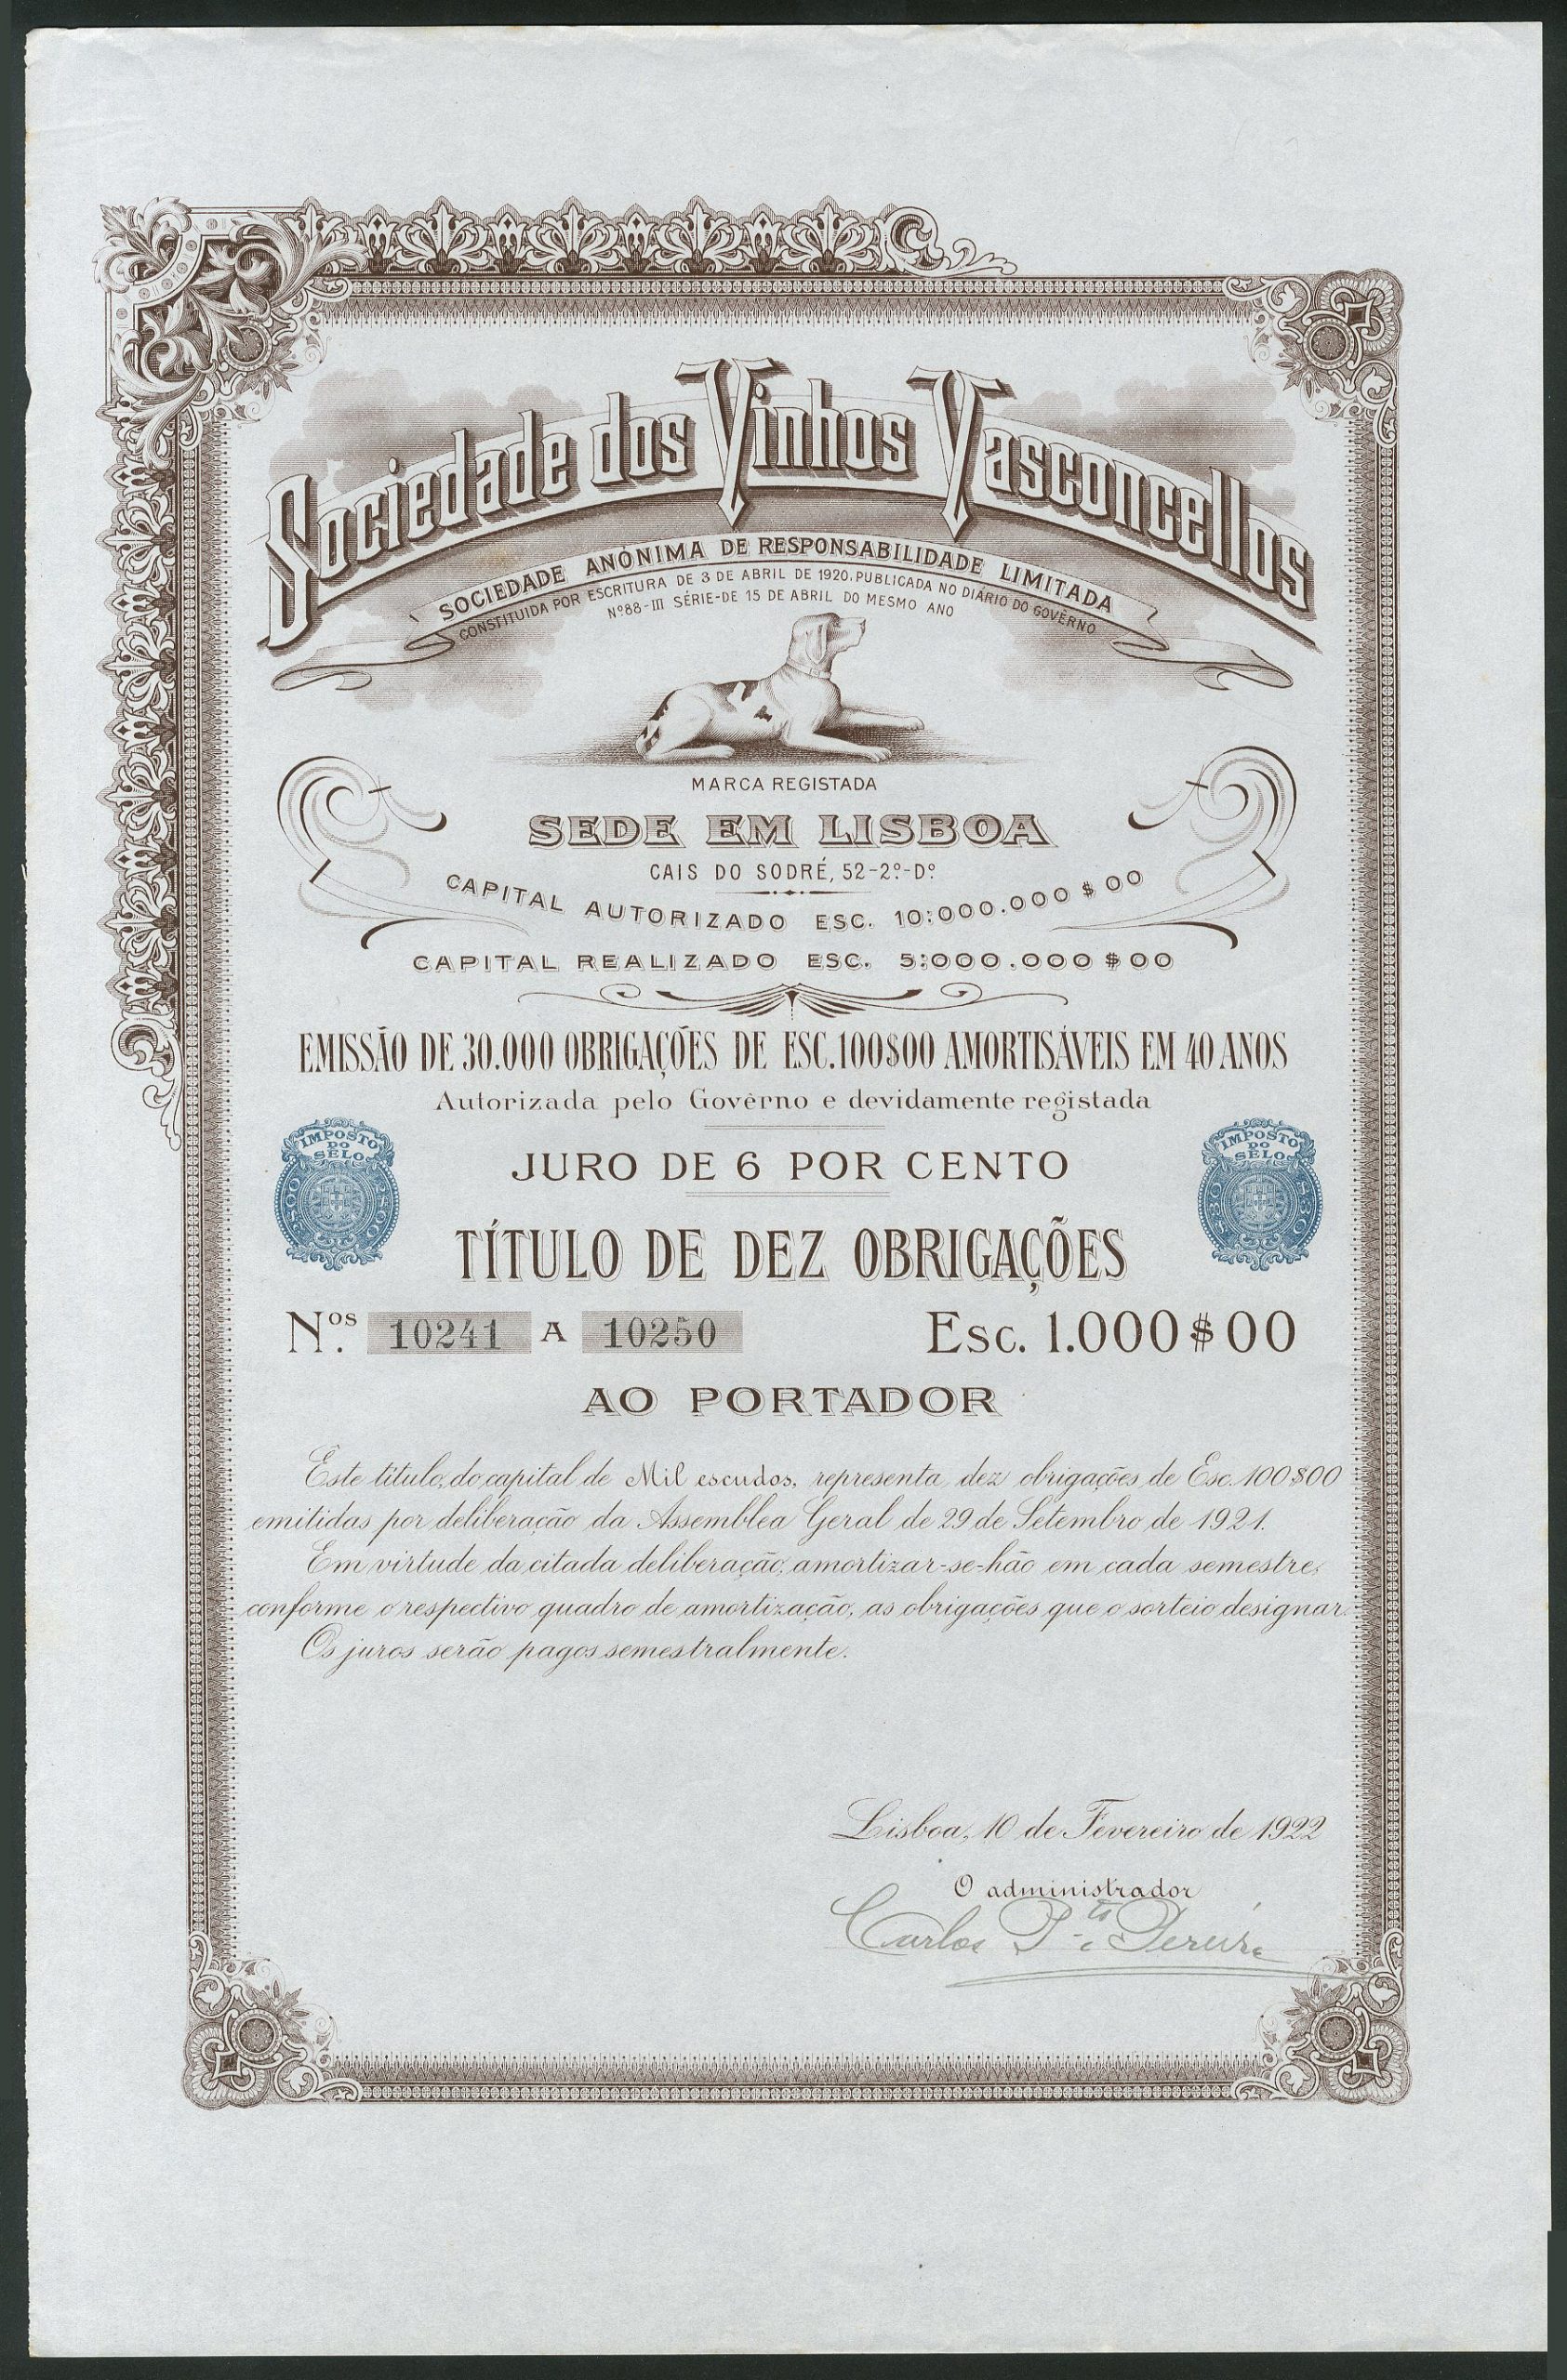 Sociedade dos Vinhos Vasconcellos
SOCIEDADE ANÓNIMA DE RESPONSABILIDADE LIMITADA
CONSTITUIDA POR ESCRITURA DE 3 DE ABRIL DE 1920, PUBLICADA NO DIÁRIO DO GOVÊRNO
Nº 88-III SÉRIE-DE 15 DE ABRIL DO MESMO ANO
MARCA REGISTADA
SEDE EM LISBOA
CAIS DO SODRÉ, 52-2º-Dº
CAPITAL AUTORIZADO ESC. 10:000.000$00
CAPITAL REALIZADO ESC. 5:000.000$00
EMISSÃO DE 30.000 OBRIGAÇÕES DE ESC.100$00 AMORTISÁVEIS EM 40 ANOS
Autorizada pelo Govêrno e devidamente registada
IMPOSTO
DO
SELO
IMPOSTO
DO
SELO
JURO DE 6 POR CENTO
TÍTULO DE DEZ OBRIGAÇÕES
Nos. 10241 A 10250 Esc. 1.000$00
AO PORTADOR
Êste título, do capital de Mil escudos, representa dez obrigações de Esc. 100$00
emitidas por deliberação da Assemblea Geral de 29 de Setembro de 1921.
Em virtude da citada deliberação, amortizar-se-hão em cada semestre,
conforme o respectivo quadro de amortização, as obrigações que o sorteio designar.
Os juros serão pagos semestralmente.
Lisboa, 10 de Fevereiro de 1922
O administrador
Carlos Pereira